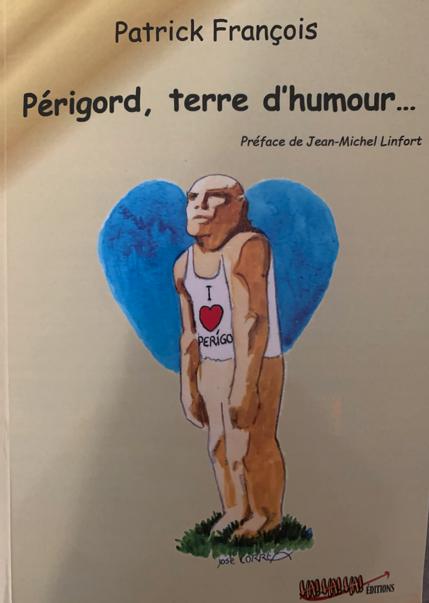 Patrick François
Périgord, terre d'humour...
Préface de Jean-Michel Linfort
I
PERÍGO
José CORREA
LA! LA! LA! ÉDITIONS